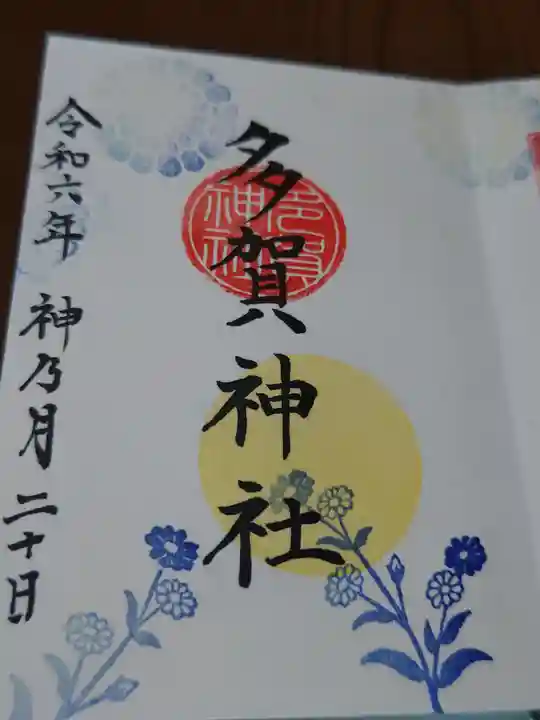 多賀神社
令和六年 神乃月二十日
多賀
神社